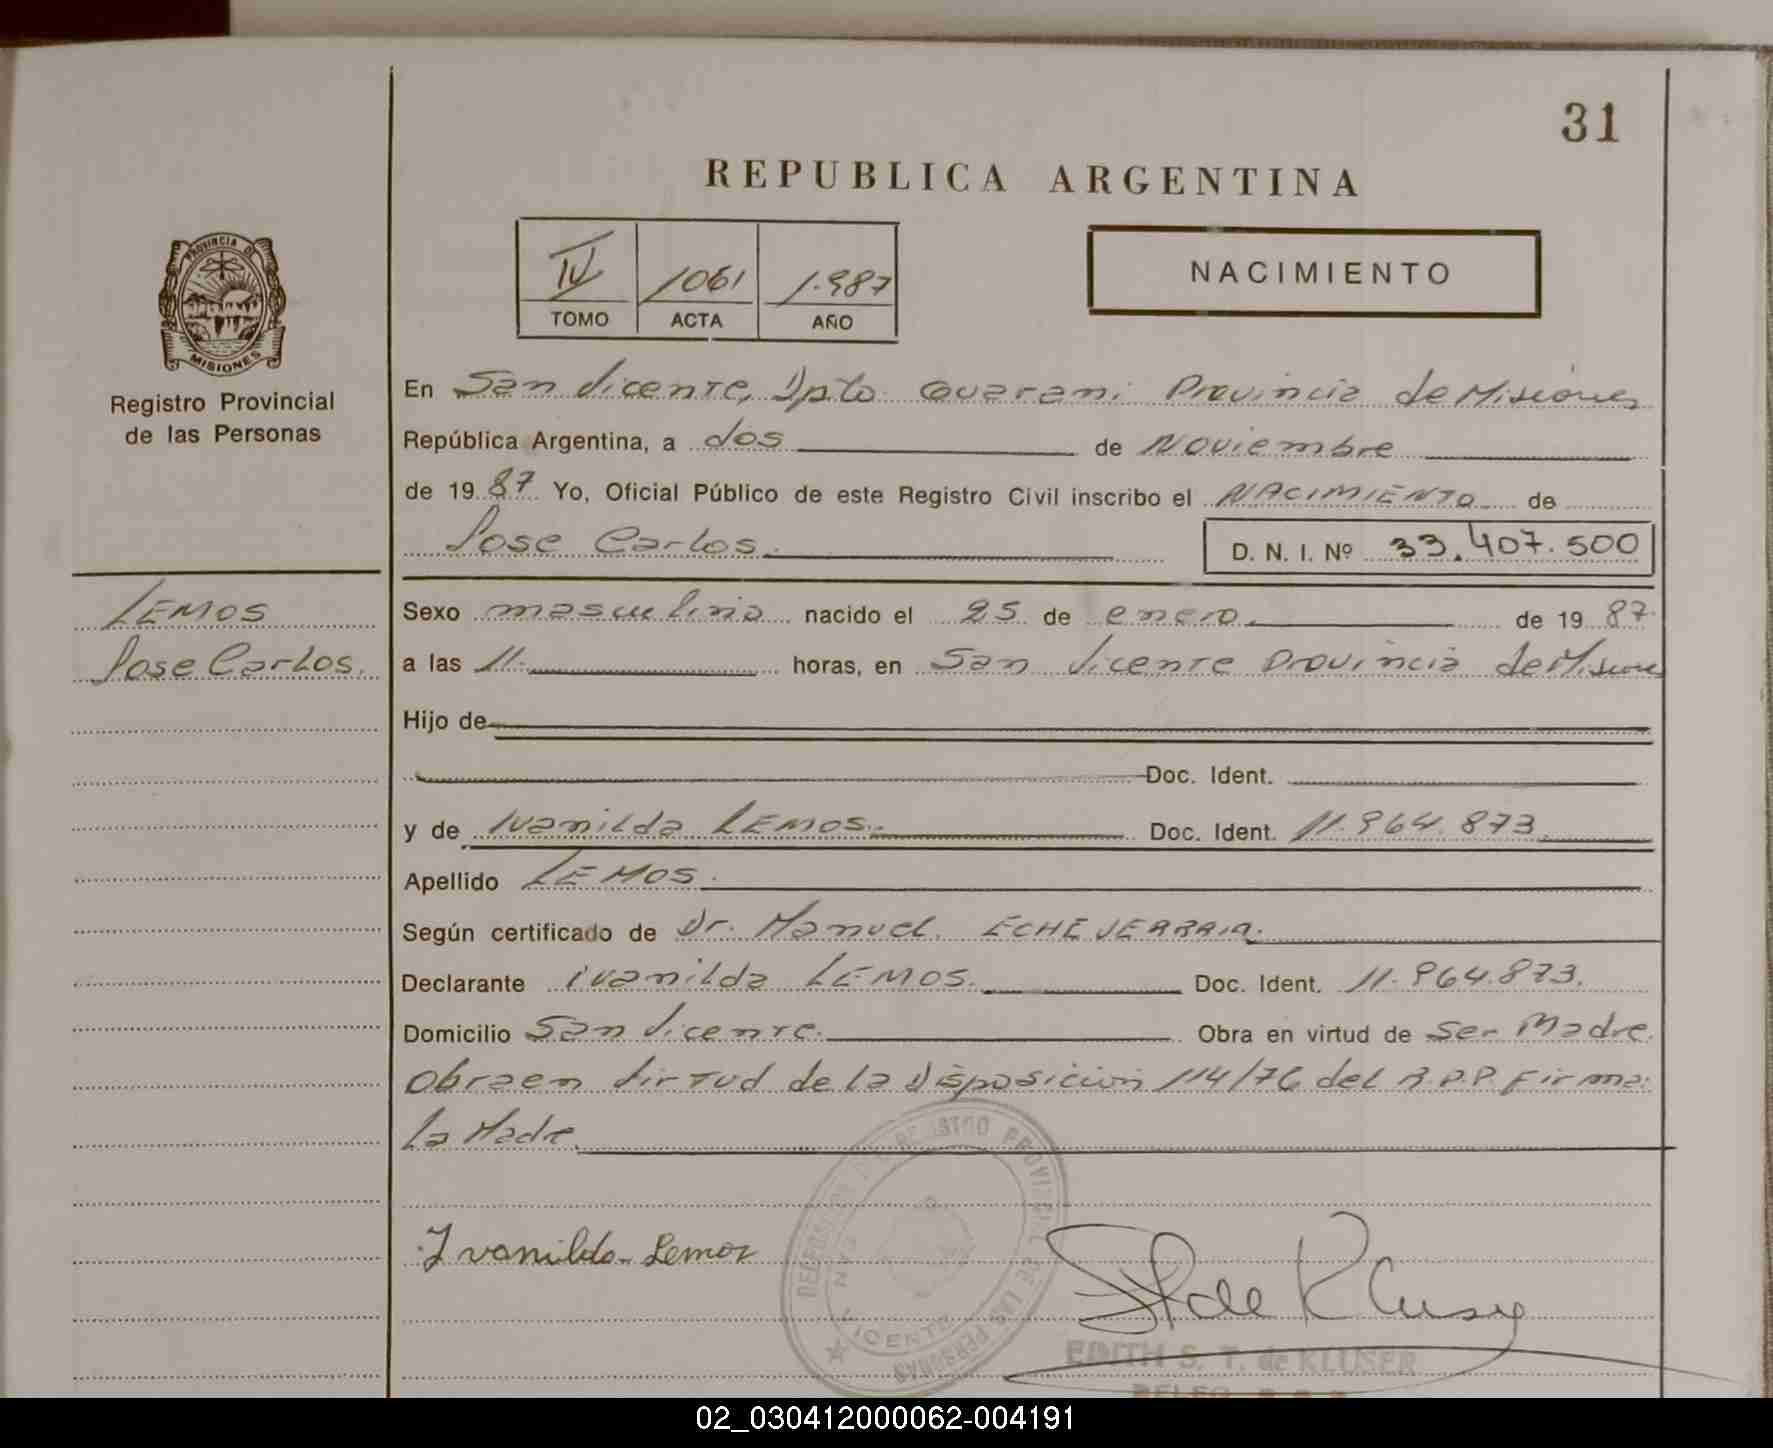 31
REPUBLICA ARGENTINA
IV 1061 1.987
TOMO ACTA AÑO
NACIMIENTO
PROVINCIA DE MISIONES
Registro Provincial
de las Personas
En San Vicente, Dpto. Guarani Provincia de Misiones
República Argentina, a dos de Noviembre
de 1987 Yo, Oficial Público de este Registro Civil inscribo el NACIMIENTO de
Jose Carlos. D. N. I. Nº 33.407.500
LEMOS
Jose Carlos.
Sexo masculino nacido el 25 de enero de 1987.
a las 11. horas, en San Vicente Provincia de Misiones
Hijo de
Doc. Ident.
y de Ivanilda LEMOS. Doc. Ident. 11.964.873
Apellido LEMOS.
Según certificado de Dr. Manuel ECHEVERRRIA.
Declarante ivanilda LEMOS. Doc. Ident. 11.964.873.
Domicilio San Vicente. Obra en virtud de Ser Madre.
Obra en Virtud de la Disposicion 114/76 del R.P.P. Firma:
La Madre
DELEGACION DEL REGISTRO PROVINCIAL DE LAS PERSONAS
SAN VICENTE
Ivanilda Lemos
de Kluser
EDITH S. T. de KLUSER
02_030412000062-004191